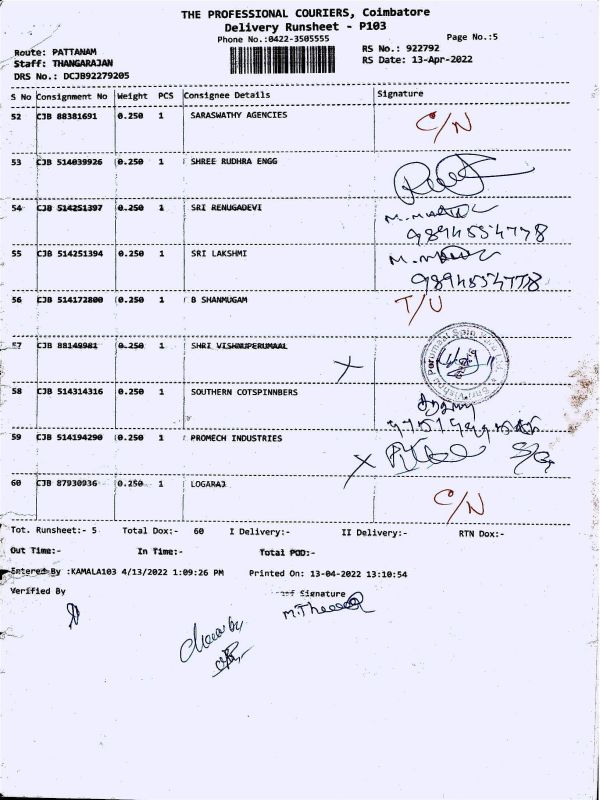 THE PROFESSIONAL COURIERS, Coimbatore
Delivery Runsheet - P103
Phone No.:0422-3505555
Page No.:5
Route: PATTANAM
RS No.: 922792
Staff: THANGARAJAN
RS Date: 13-Apr-2022
DRS No.: DCJB92279205
S No Consignment No Weight PCS Consignee Details Signature
52 CJB 88381691 0.250 1 SARASWATHY AGENCIES C/N
53 CJB 514039926 0.250 1 SHREE RUDHRA ENGG
54 CJB 514251397 0.250 1 SRI RENUGADEVI
9894554778
55 CJB 514251394 0.250 1 SRI LAKSHMI
9894554778
56 CJB 514172800 0.250 1 B SHANMUGAM T/U
57 CJB 88149981 0.250 1 SHRI VISHNUPERUMAAL
58 CJB 514314316 0.250 1 SOUTHERN COTSPINNBERS
59 CJB 514194290 0.250 1 PROMECH INDUSTRIES
60 CJB 87930936 0.250 1 LOGARAJ C/N
Tot. Runsheet:- 5 Total Dox:- 60 I Delivery:- II Delivery:- RTN Dox:-
Out Time:- In Time:- Total POD:-
Entered By :KAMALA103 4/13/2022 1:09:26 PM Printed On: 13-04-2022 13:10:54
Verified By Signature